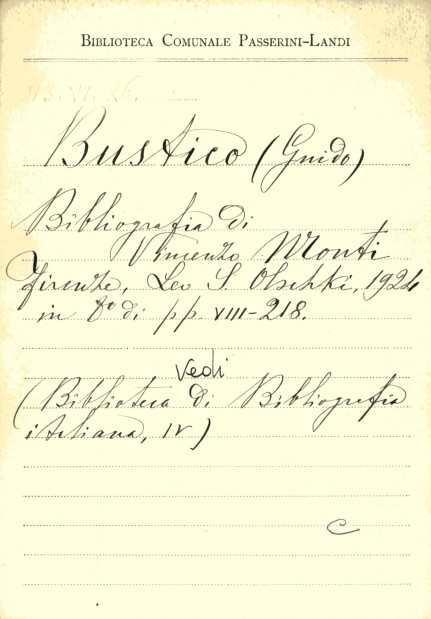 BIBLIOTECA COMUNALE PASSERINI-LANDI
Bustico (Guido)
Bibliografia di
Vincenzo Monti
Firenze, Leo S. Olschki, 1924
in 8º di pp. VIII-218.
Vedi
(Biblioteca di Bibliografia
italiana, IV)
C